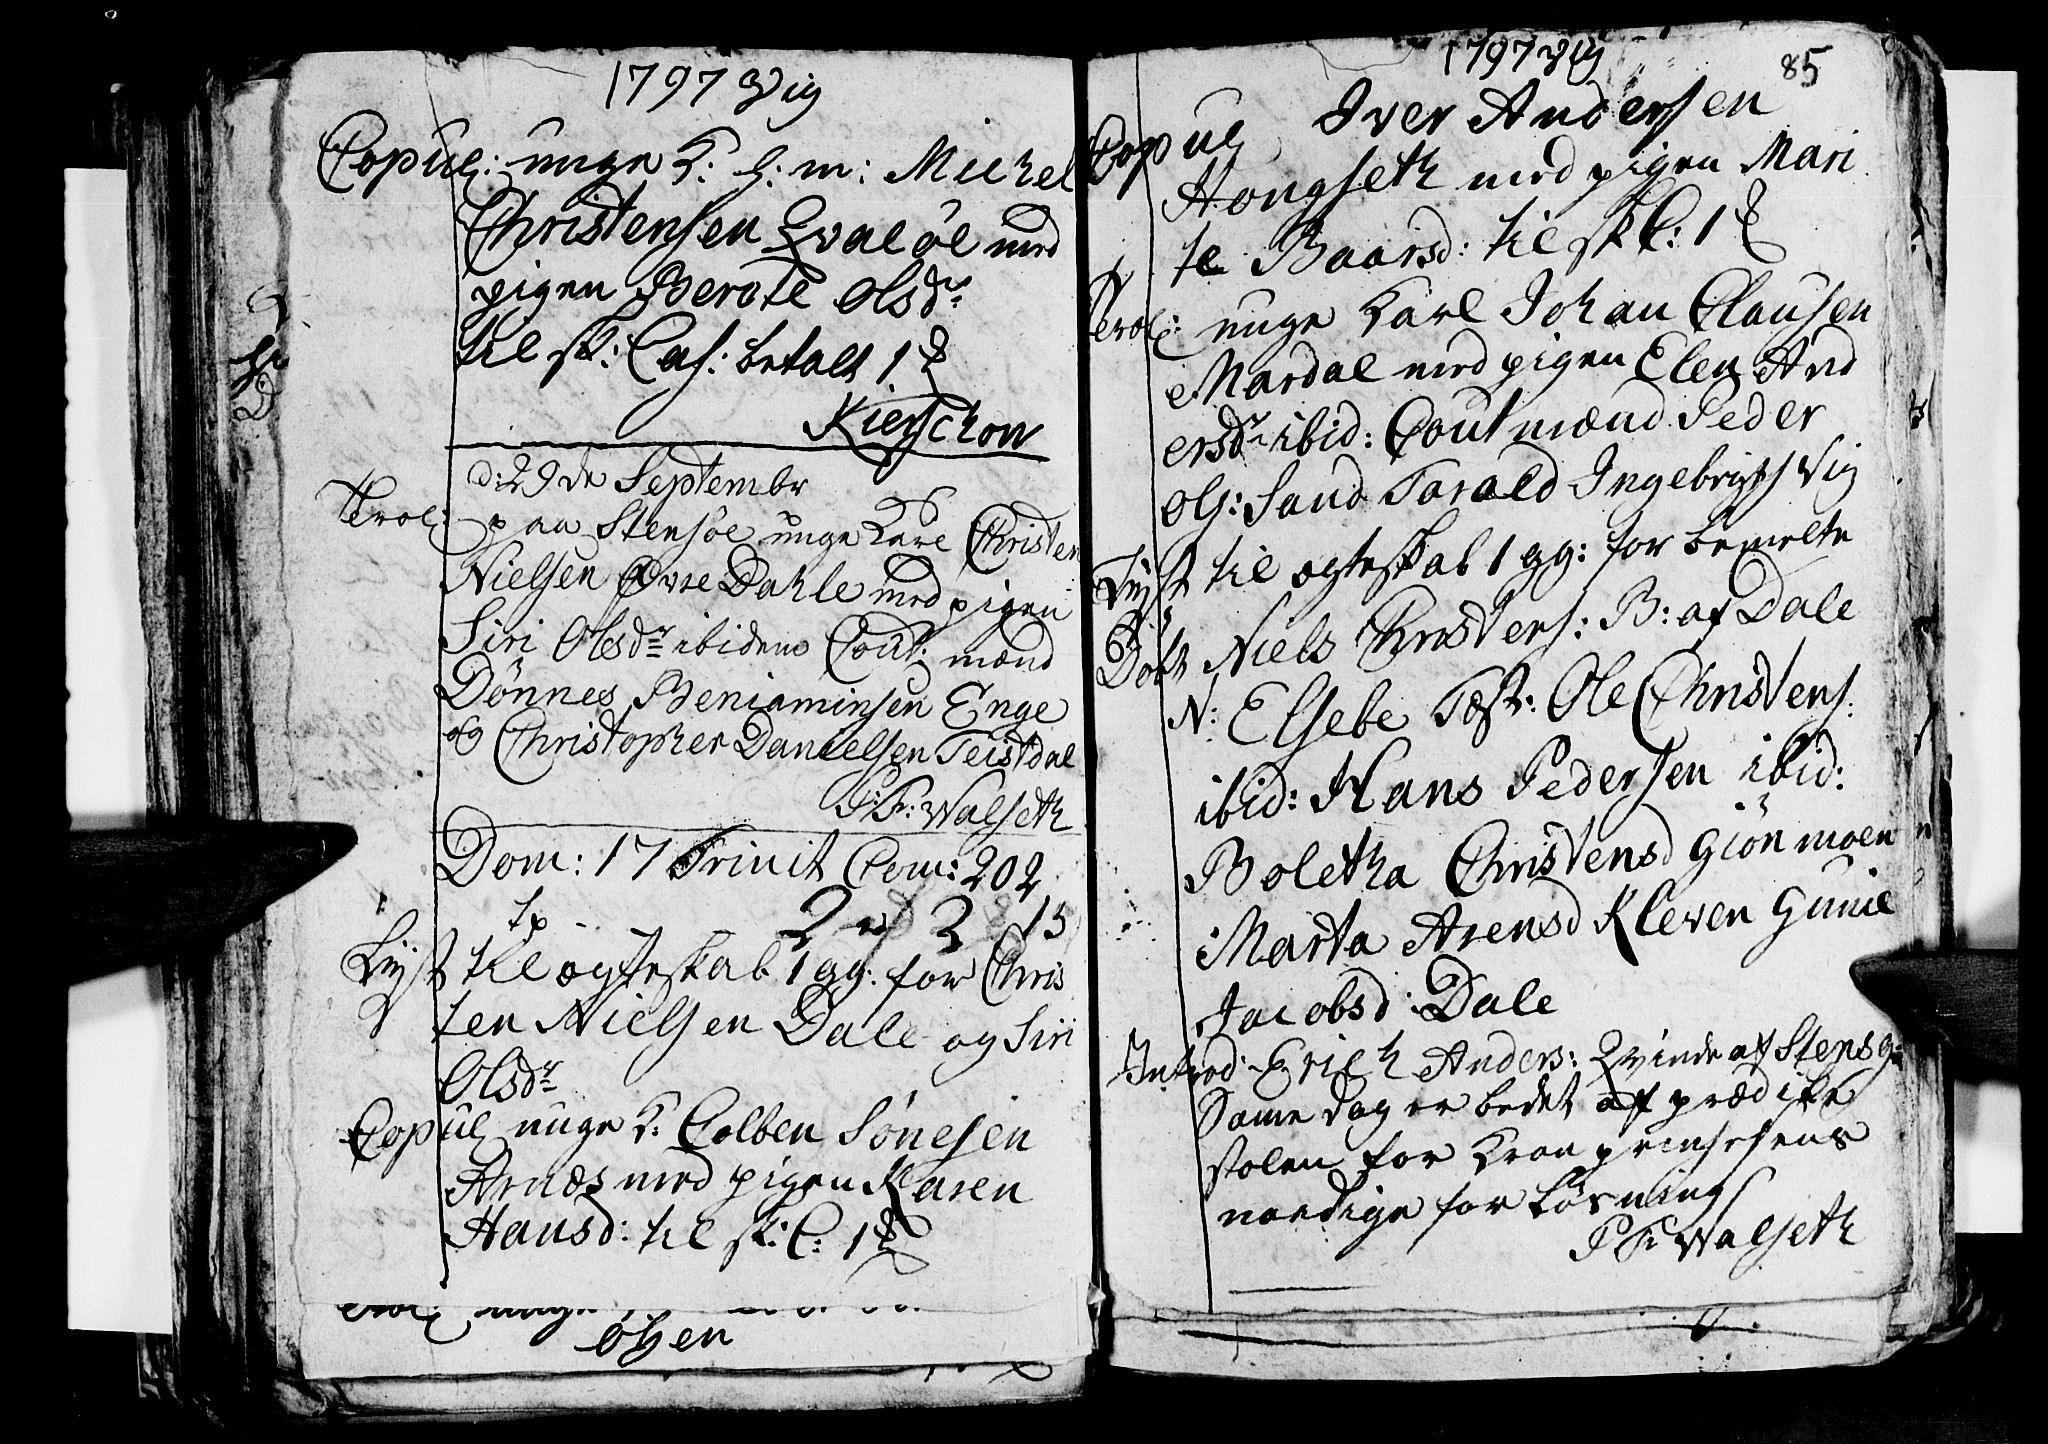 1797 Vig
Copul: unge K: h: m: Michel
Christensen Qvaløe med
pigen Berote Olsdr
til sk: Cas: betalt 1 ℞
Kierschow
d: 29de Septembr
Trol: paa Stensøe unge Karl Christen
Nielsen Øvre Dahle med pigen
Siri Olsdr ibidem Cout: mænd
Dønnes Beniaminsen Enge
og Christopher Danielsen Teistdal
P: F: Walseth
Dom: 17 Trinit Com: 202
Lyst til ægteskab 1 gg: for Chris
ten Nielsen Dale og Siri
Olsdr
Copul unge K: Colben Sønesen
Arnæs med pigen Karen
Hansd: til sk: C: 1 ℞
Trol: unge
Olsen
1797 Vig
85
Copul Iver Andersen
Hongseth med pigen Mari
te Baarsd: til sk C: 1 ℞
Trol: unge Karl Johan Clausen
Mardal med pigen Elen And
ersdr ibid: Cout mænd Peder
Ols: Sand Tarald Ingebrigts Vig
Lyst til ægteskab 1 gg: for bemelte
Døbt Niels Christens: B: af Dale
N: Elsebe Test: Ole Christens:
ibid: Hans Pedersen ibid:
Boletha Christensd Giönmoen
Marta Arensd Kleven Gunil
Jacobsd: Dale
Introd: Erich Anders: Qvinde af Stensø:
Same dag er bedet af prædike
stolen for Kron prinsesens
naadige for Løsning
P F: Walseth